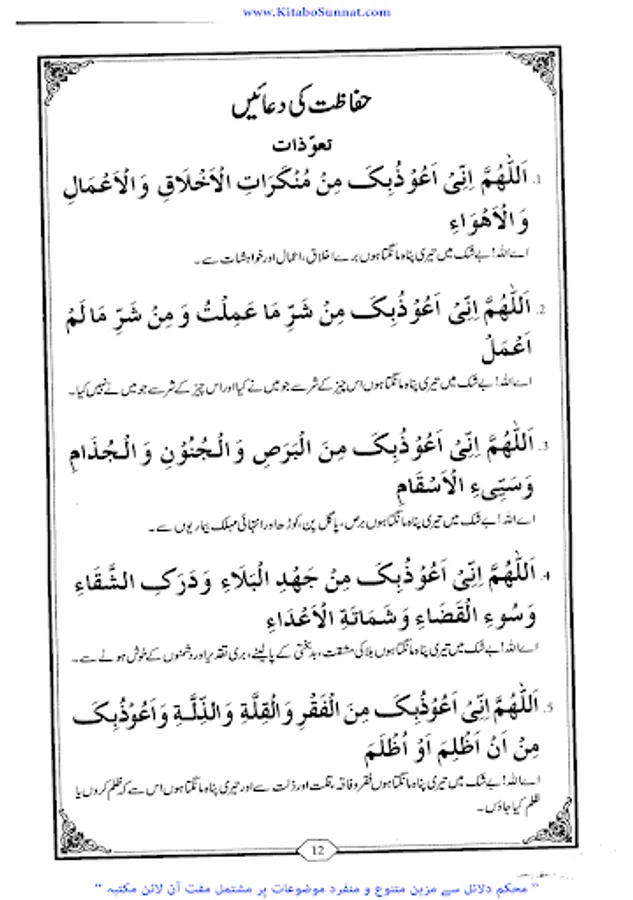 www.KitaboSunnat.com
حفاظت کی دعائیں
تعوّذات
1. اَللّٰهُمَّ اِنِّیْ اَعُوْذُبِکَ مِنْ مُنْکَرَاتِ الْاَخْلَاقِ وَالْاَعْمَالِ
وَالْاَهْوَاءِ
اے اللہ! بے شک میں تیری پناہ مانگتا ہوں برے اخلاق، اعمال اور خواہشات سے۔
2. اَللّٰهُمَّ اِنِّیْ اَعُوْذُبِکَ مِنْ شَرِّ مَا عَمِلْتُ وَمِنْ شَرِّ مَا لَمْ
اَعْمَلْ
اے اللہ! بے شک میں تیری پناہ مانگتا ہوں اس چیز کے شر سے جو میں نے کیا اور اس چیز کے شر سے جو میں نے نہیں کیا۔
3. اَللّٰهُمَّ اِنِّیْ اَعُوْذُبِکَ مِنَ الْبَرَصِ وَالْجُنُوْنِ وَالْجُذَامِ
وَسَیِّیءِ الْاَسْقَامِ
اے اللہ! بے شک میں تیری پناہ مانگتا ہوں برص، پاگل پن، کوڑھ اور انتہائی مہلک بیماریوں سے۔
4. اَللّٰهُمَّ اِنِّیْ اَعُوْذُبِکَ مِنْ جَهْدِ الْبَلَاءِ وَدَرَکِ الشَّقَاءِ
وَسُوءِ الْقَضَاءِ وَشَمَاتَةِ الْاَعْدَاءِ
اے اللہ! بے شک میں تیری پناہ مانگتا ہوں بلا کی مشقت، بدبختی کے پا لینے، بری تقدیر اور دشمنوں کے خوش ہونے سے۔
5. اَللّٰهُمَّ اِنِّیْ اَعُوْذُبِکَ مِنَ الْفَقْرِ وَالْقِلَّةِ وَالذِّلَّةِ وَاَعُوْذُبِکَ
مِنْ اَنْ اَظْلِمَ اَوْ اُظْلَمَ
اے اللہ! بے شک میں تیری پناہ مانگتا ہوں فقر و فاقہ، قلت اور ذلت سے اور تیری پناہ مانگتا ہوں اس سے کہ ظلم کروں یا
ظلم کیا جاؤں۔
12
" محکم دلائل سے مزین متنوع و منفرد موضوعات پر مشتمل مفت آن لائن مکتبہ "